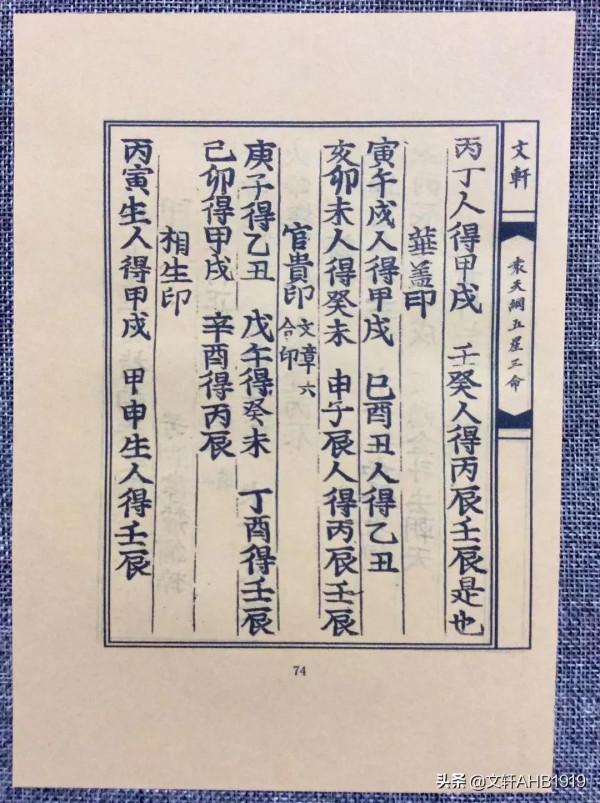 文軒
袁天綱五星三命
丙丁人得甲戌 壬癸人得丙辰壬辰是也
華盖印
寅午戌人得甲戌 巳酉丑人得乙丑
亥卯未人得癸未 申子辰人得丙辰壬辰
官貴印 文章六合印
庚子得乙丑 戊午得癸未 丁酉得壬辰
己卯得甲戌 辛酉得丙辰
相生印
丙寅生人得甲戌 甲申生人得壬辰
74
头条 @文轩AHB1919